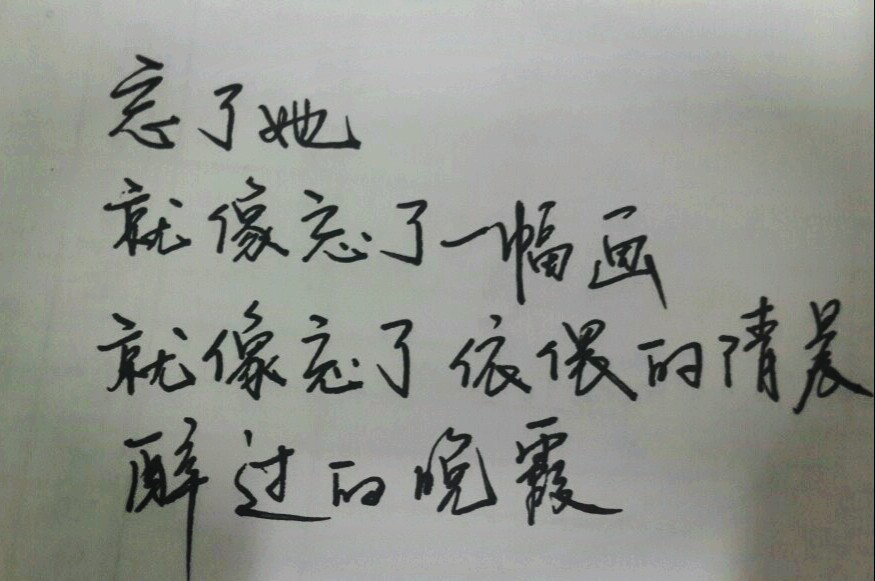 忘了她
就像忘了一幅画
就像忘了依偎的清晨
醉过的晚霞